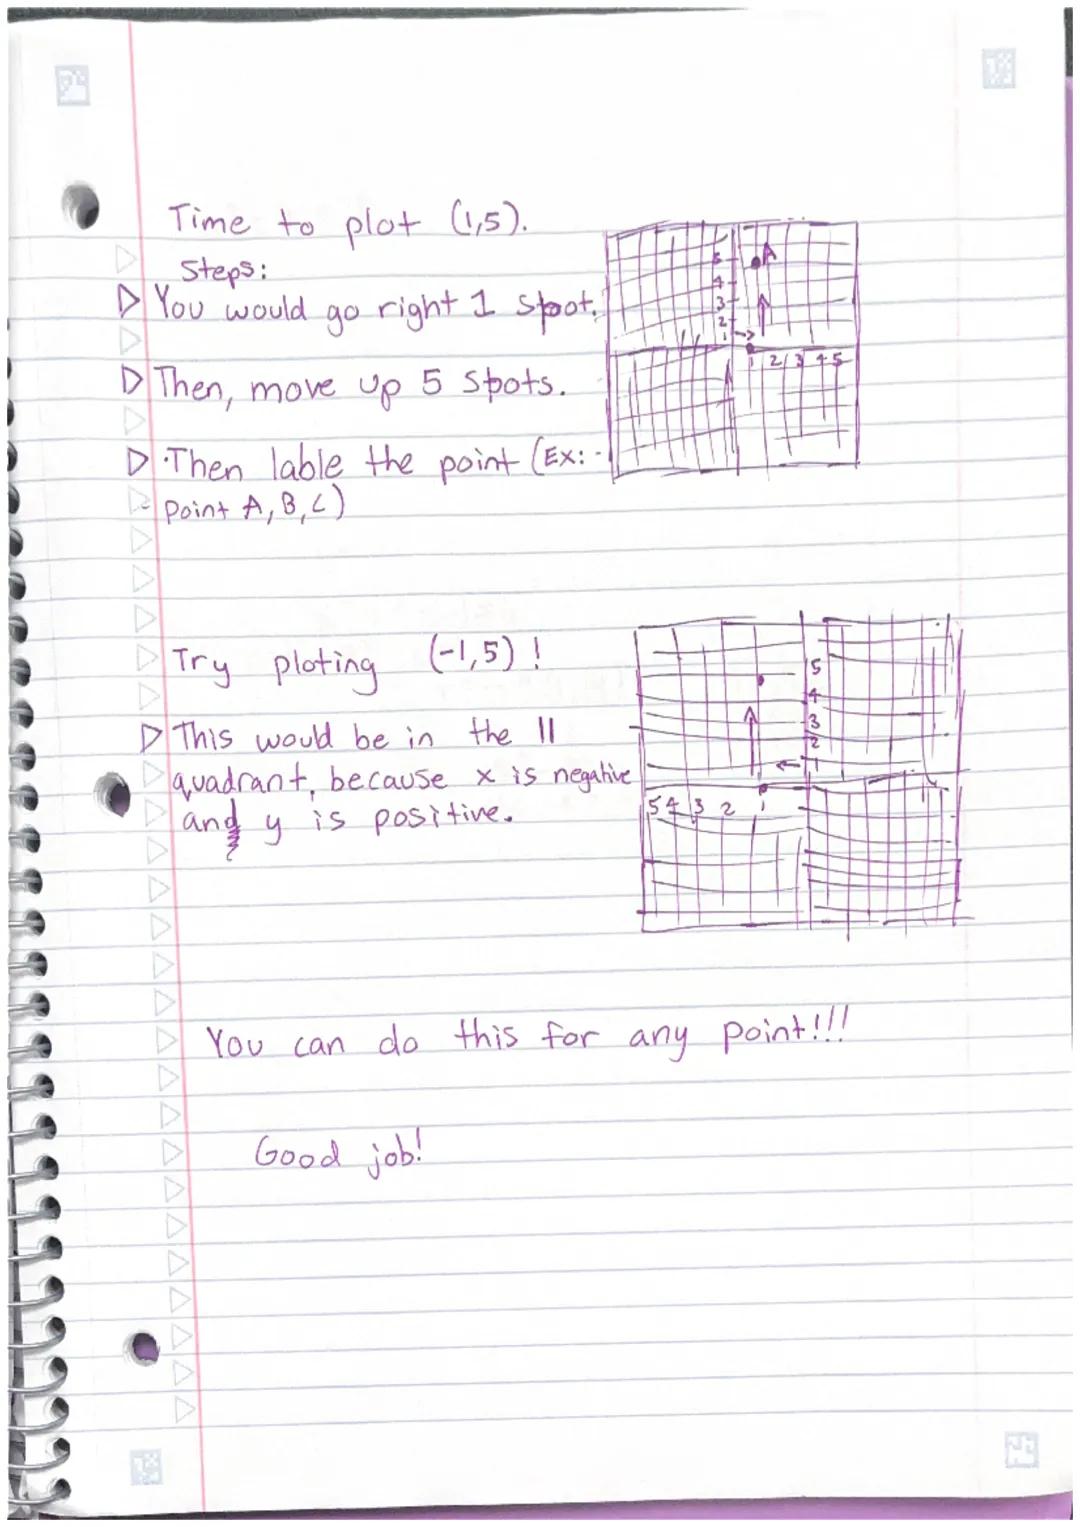 Time to plot (1,5).
Steps:
You would go right 1 spot.
Then, move up 5 spots.
Then lable the point (Ex:
Point A, B, C)
5 A
4
3
2
1
1 2 3 4 5
Try ploting (-1,5)!
This would be in the II
quadrant, because x is negative
and y is positive.
5
4
3
2
1
5 4 3 2 1
You can do this for any point!!!
Good job!